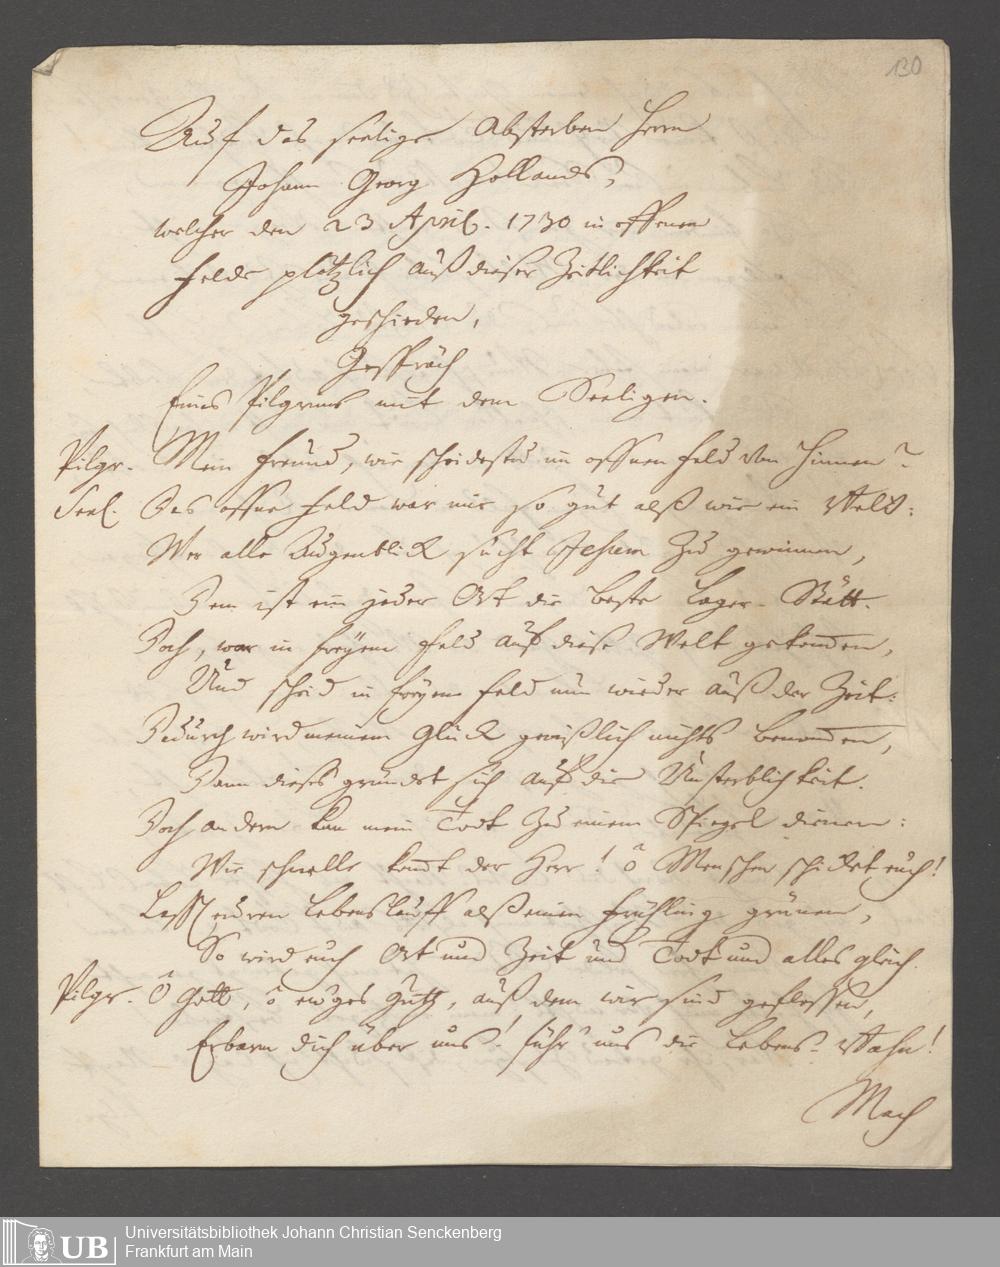 130
Auf das seelige Absterben Herrn
Johann Georg Hollands,
welcher den 23 April. 1730 in offenen
Felde plötzlich auß dieser Zeitlichkeit
geschieden,
Gespräch
Eines Pilgrims mit dem Seeligen.
Pilgr. Mein Freund, wie scheidestu im offnen Feld von hinnen?
Seel. Das offne Feld war mir so gut alß wie ein
Wer alle Augenblick sucht Jesum zu gewinnen,
Dem ist ein jeder Ort die beste Lager-Stätt.
Doch, war in freyem Feld auf diese Welt gekommen,
Und scheid in freyem Feld nun wieder auß der Zeit:
Dadurch wird meinem Glück gewißlich nichts benommen,
Dann dieses gründet sich auf die Unsterblichkeit.
Doch andern kan mein Todt zu einem Spiegel dienen:
Wie schnelle kommt der Herr! ô Menschen schicket euch!
Lasst euren Lebenslauff alß einen Frühling grünen,
So wird euch Ort und Zeit und Todt und alles gleich.
Pilgr. Ô Gott, ô ew'ges Gut, auß dem wir sind geflossen,
Erbarm dich über uns! führ' uns die Lebens-Bahn!
Mach
UB
Universitätsbibliothek Johann Christian Senckenberg
Frankfurt am Main